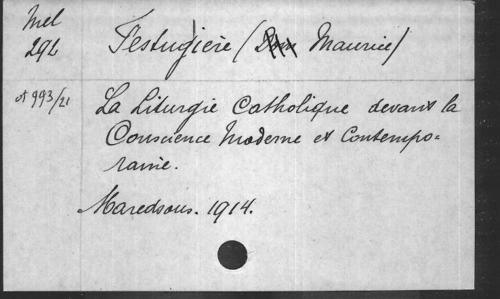 Mel
292
Festugière (Dom Maurice)
A 993/21
La Liturgie Catholique devant la
Conscience Moderne et Contempo=
raine.
Maredsous. 1914.